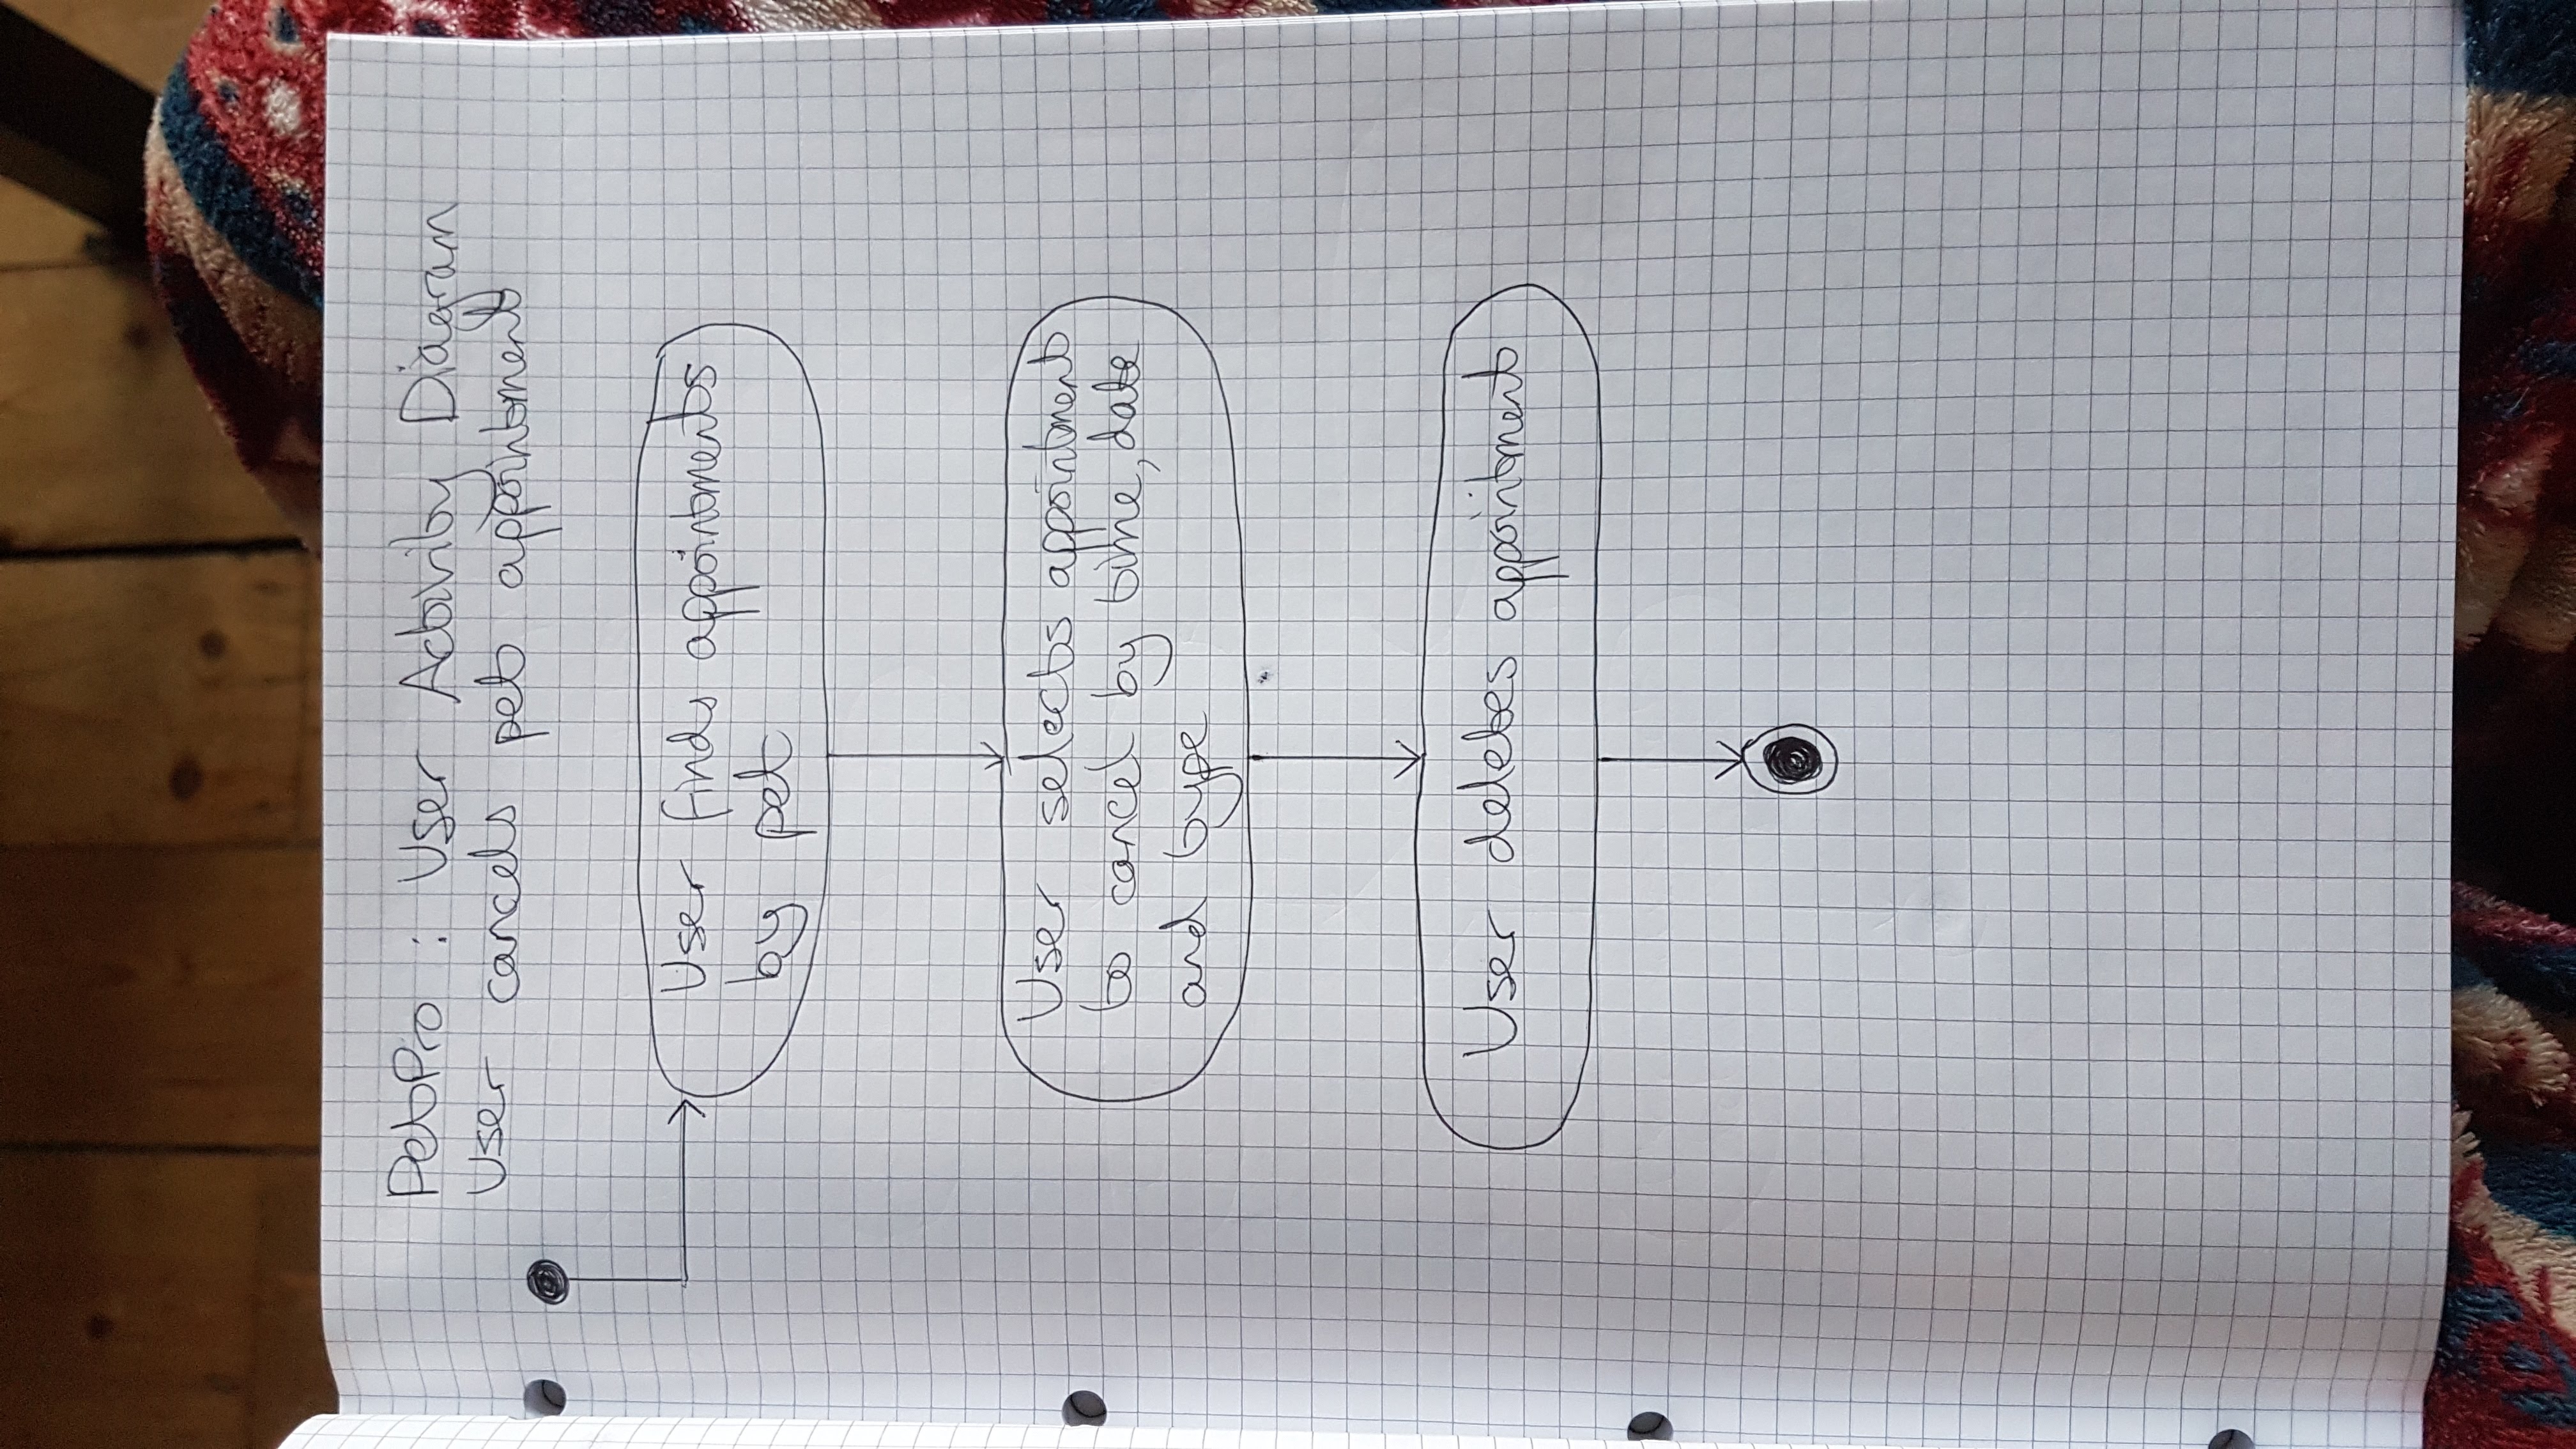 PetPro : User Activity Diagram
User cancels pet appointment
User finds appointments
by pet
User selects appointment
to cancel by time, date
and type
User deletes appointment